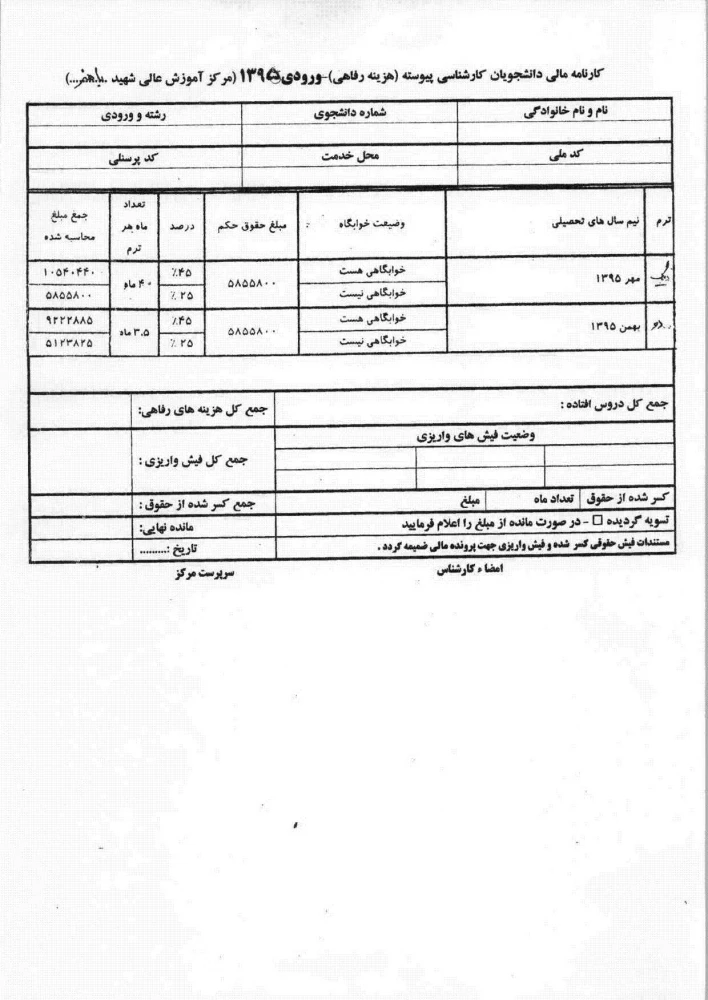 کارنامه مالی دانشجویان کارشناسی پیوسته (هزینه رفاهی)-ورودی ۱۳۹۵ (مرکز آموزش عالی شهید ..باهنر...)
نام و نام خانوادگی شماره دانشجوی رشته و ورودی
کد ملی محل خدمت کد پرسنلی
ترم نیم سال های تحصیلی وضیعت خوابگاه : مبلغ حقوق حکم درصد تعداد ماه هر ترم جمع مبلغ محاسبه شده
یک مهر ۱۳۹۵ خوابگاهی هست ۵۸۵۵۸۰۰ ٪۴۵ ۴۰ ماه ۱۰۵۴۰۴۴۰
خوابگاهی نیست ٪ ۲۵ ۵۸۵۵۸۰۰
دو.. بهمن ۱۳۹۵ خوابگاهی هست ۵۸۵۵۸۰۰ ٪۴۵ ۳.۵ ماه ۹۲۲۲۸۸۵
خوابگاهی نیست ٪ ۲۵ ۵۱۲۳۸۲۵
جمع کل دروس افتاده : جمع کل هزینه های رفاهی:
وضعیت فیش های واریزی
جمع کل فیش واریزی :
کسر شده از حقوق تعداد ماه مبلغ جمع کسر شده از حقوق :
تسویه گردیده □ - در صورت مانده از مبلغ را اعلام فرمایید مانده نهایی:
مستندات فیش حقوقی کسر شده و فیش واریزی جهت پرونده مالی ضمیمه گردد . تاریخ :.........
امضاء کارشناس سرپرست مرکز